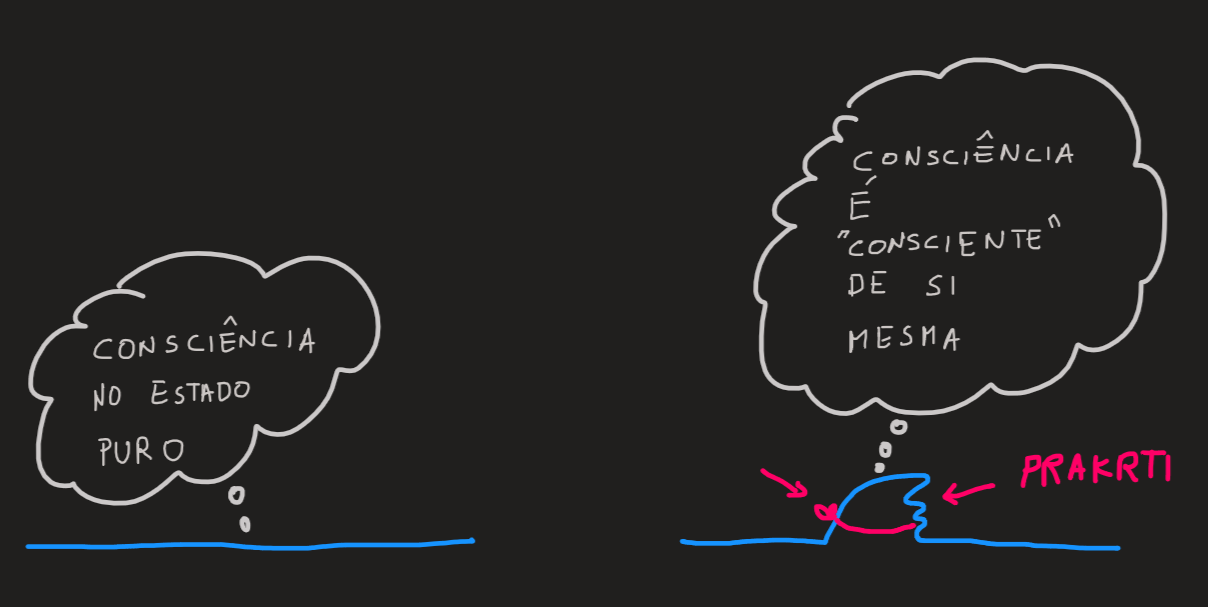 CONSCIÊNCIA
NO ESTADO
PURO
CONSCIÊNCIA
É
"CONSCIENTE"
DE SI
MESMA
PRAKRTI